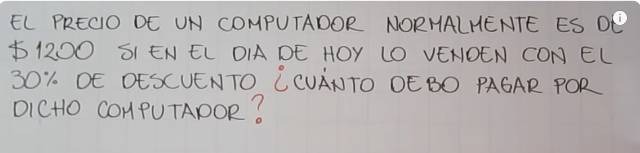 EL PRECIO DE UN COMPUTADOR NORMALMENTE ES DE
$1200 SI EN EL DIA DE HOY LO VENDEN CON EL
30% DE DESCUENTO ¿CUÁNTO DEBO PAGAR POR
DICHO COMPUTADOR?